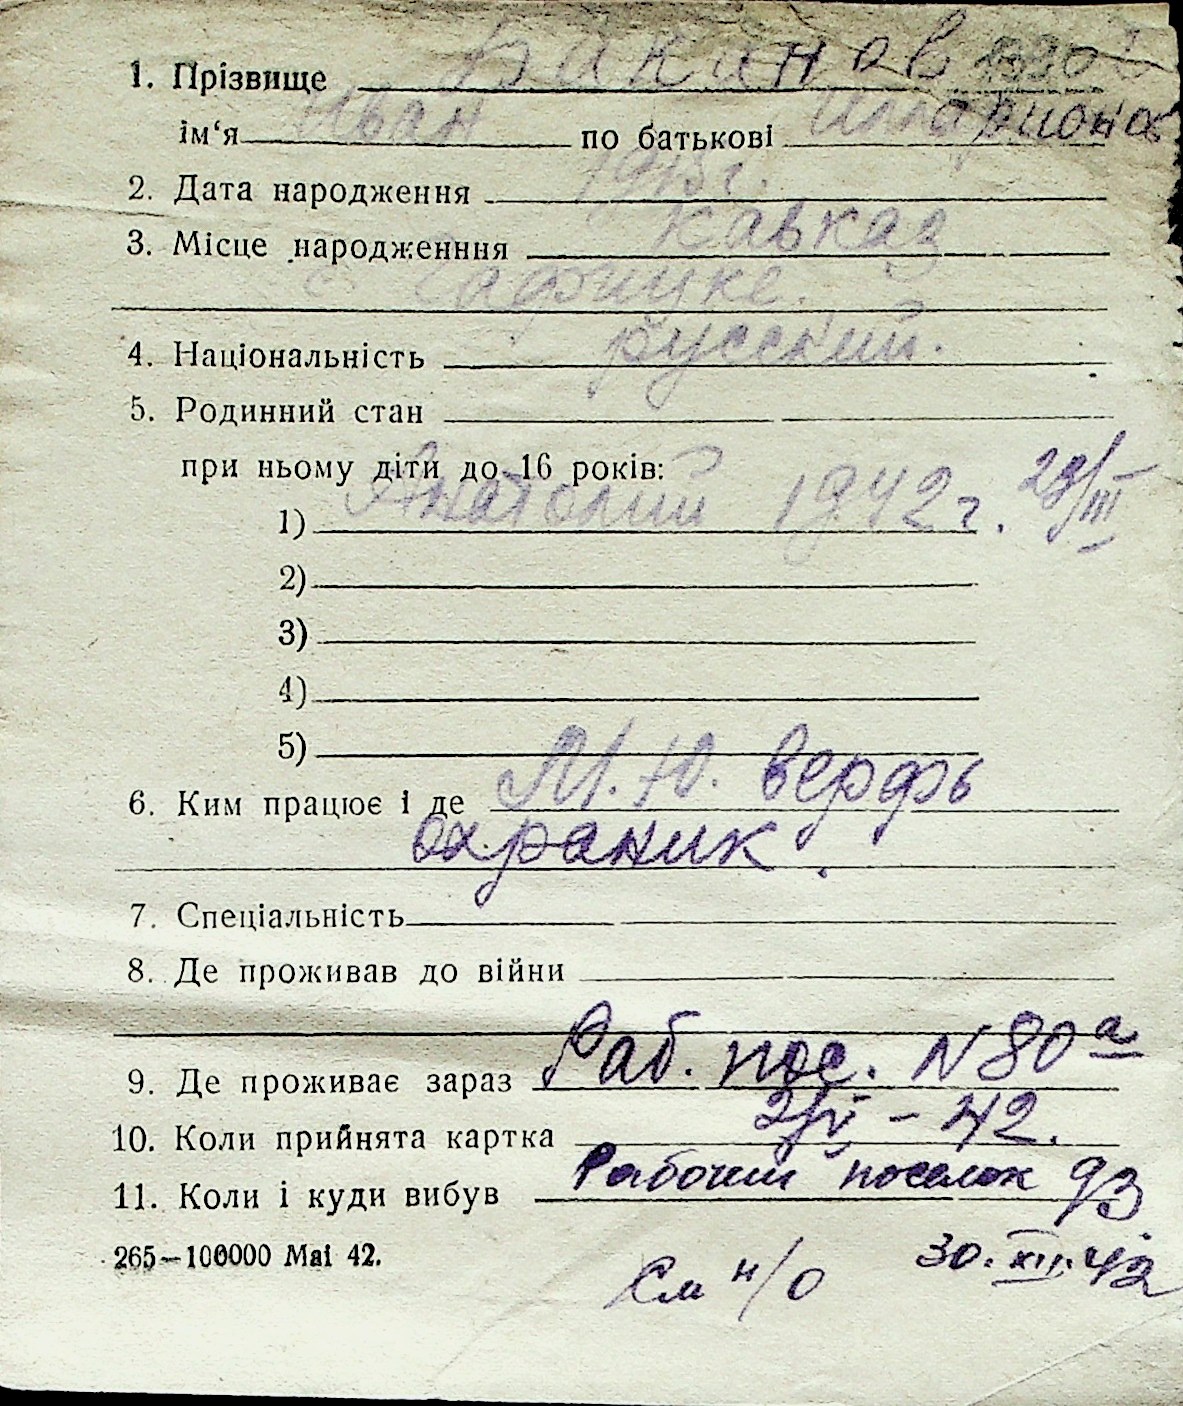 1. Прізвище Бакинов
ім‘я Иван по батькові Илларионов
2. Дата народження 1913 г.
3. Місце народженння Кавказ
с.
4. Національність русский.
5. Родинний стан
при ньому діти до 16 років:
1) Анатолий 1942 г. 29/III
2)
3)
4)
5)
6. Ким працює і де М.Ю. верфь
охраник.
7. Спеціальність
8. Де проживав до війни
9. Де проживає зараз Раб. пос. N 80 а
10. Коли прийнята картка - 42.
11. Коли і куди вибув Рабочий поселок 93
265—100000 Mai 42. 30.XII.42
См н/о